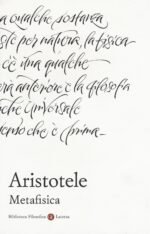 a qualche sostanza
per natura, la fisica
c'è una qualche
erà anteriore e la filosofia
che universale
enso che è prima_
Aristotele
Metafisica
Biblioteca Filosofica Laterza